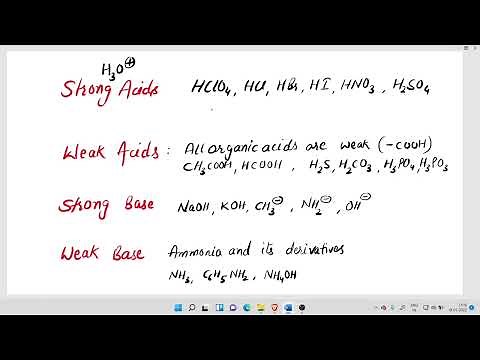 H₃O⊕
Strong Acids HClO₄, HCl, HBr, HI, HNO₃, H₂SO₄
Weak Acids : All organic acids are weak (-COOH)
CH₃COOH, HCOOH, H₂S, H₂CO₃, H₃PO₄, H₃PO₃
Strong Base NaOH, KOH, CH₃⊖, NH₂⊖, OH⊖
Weak Base Ammonia and its derivatives
NH₃, C₆H₅NH₂, NH₄OH